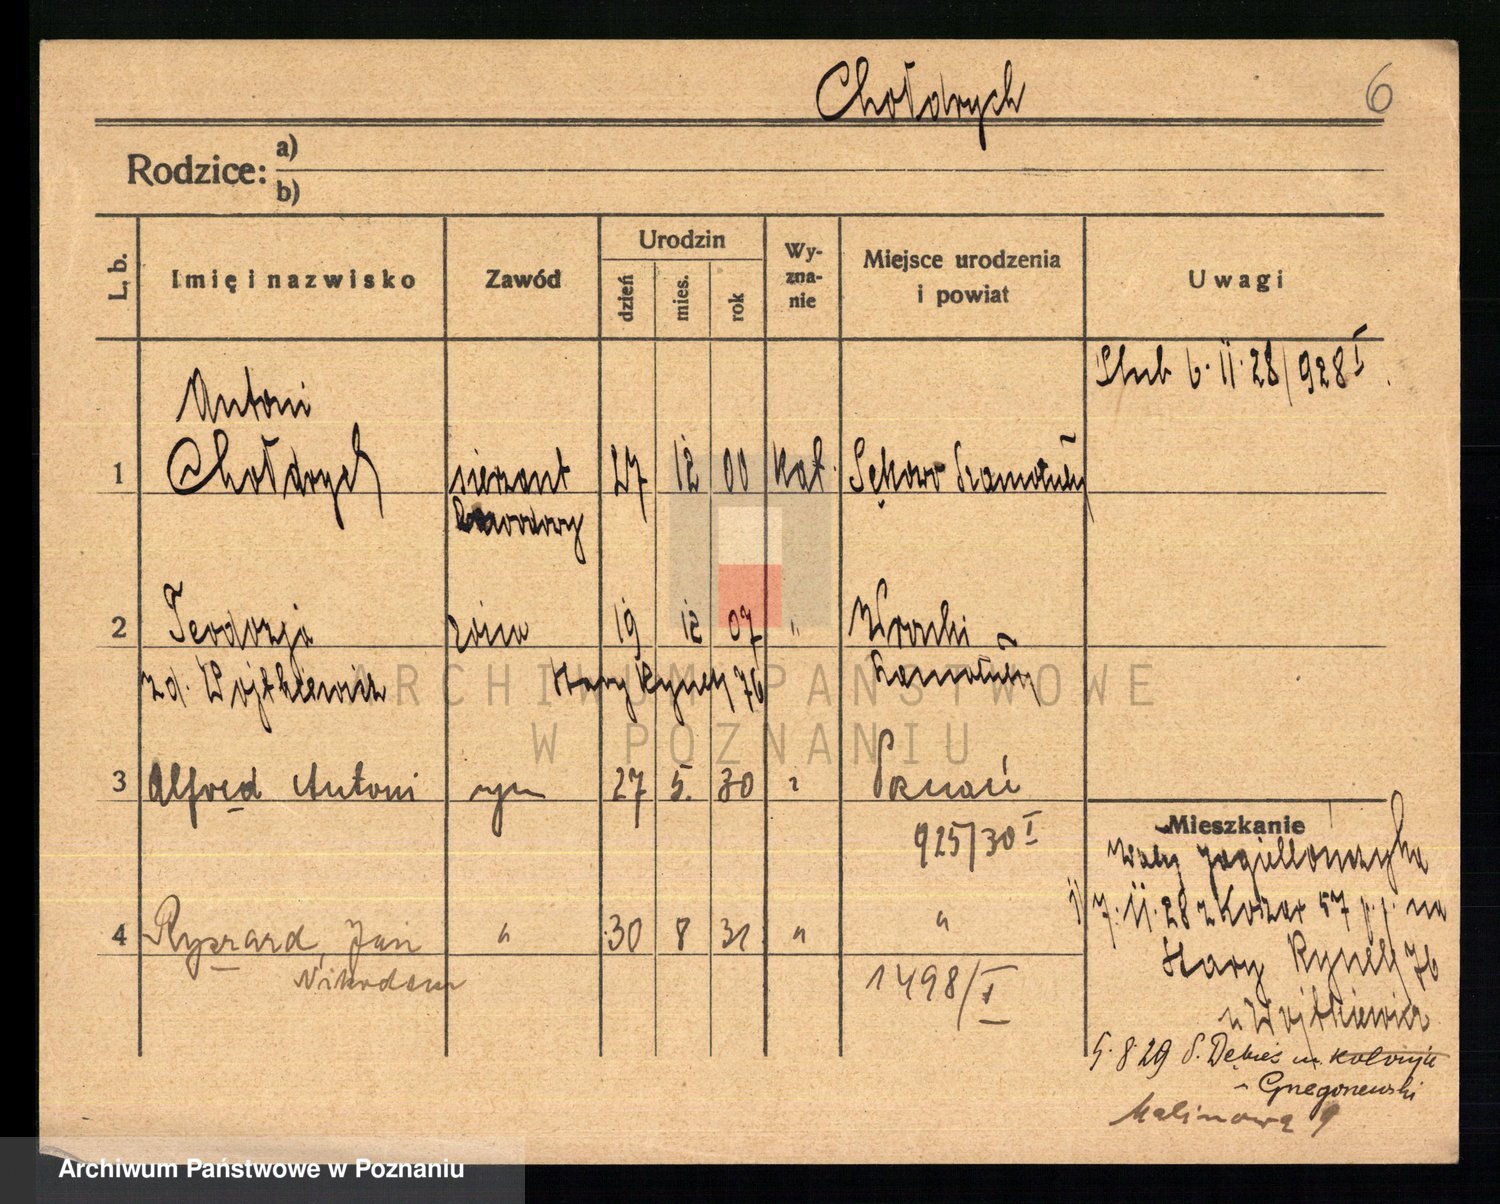 Chołdrych
6
Rodzice: a)
b)
L. b.
Imię i nazwisko
Zawód
Urodzin
dzień
mies.
rok
Wy-
zna-
nie
Miejsce urodzenia
i powiat
Uwagi
Ślub 6. II. 28/928 I
Antoni
1 Chołdrych sierżant 27 12 00 kat. Sękowo Szamotuły
zawodowy
2 Teodozja żona 19 12 07 " Wronki
zd. Wojtkiewicz Stary Rynek 76 Szamotuły
3 Alfred Antoni syn 27 5. 30 " Poznań
925/30 I
4 Ryszard, Jan " 30 8 31 " "
Nikodem
1498/I
Mieszkanie
Wały Jagiellończyka
7. 11. 28 z Koszar 57 p.p. na
Stary Rynek 76
u Wojtkiewicz
5. 8 29 Dębiec kolonja
Malinowa 9
ARCHIWUM PAŃSTWOWE
W POZNANIU
Archiwum Państwowe w Poznaniu